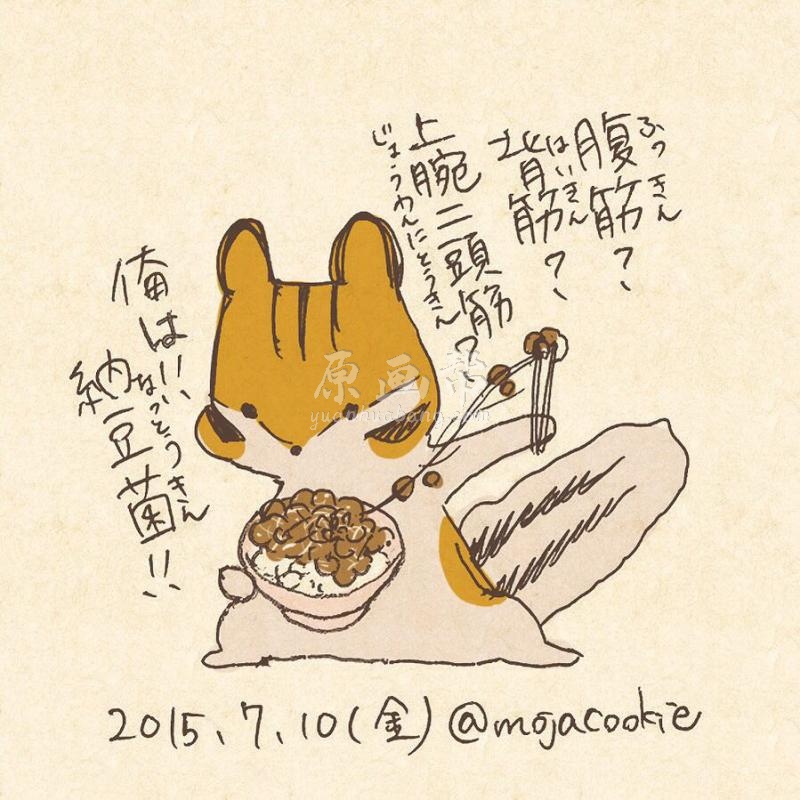 腹筋?、
ふっきん
背筋?、
はいきん
上腕二頭筋?、
じょうわんにとうきん
俺は、
納豆菌!!
なっとうきん
原画帝
2015、7、10(金)@mojacookie